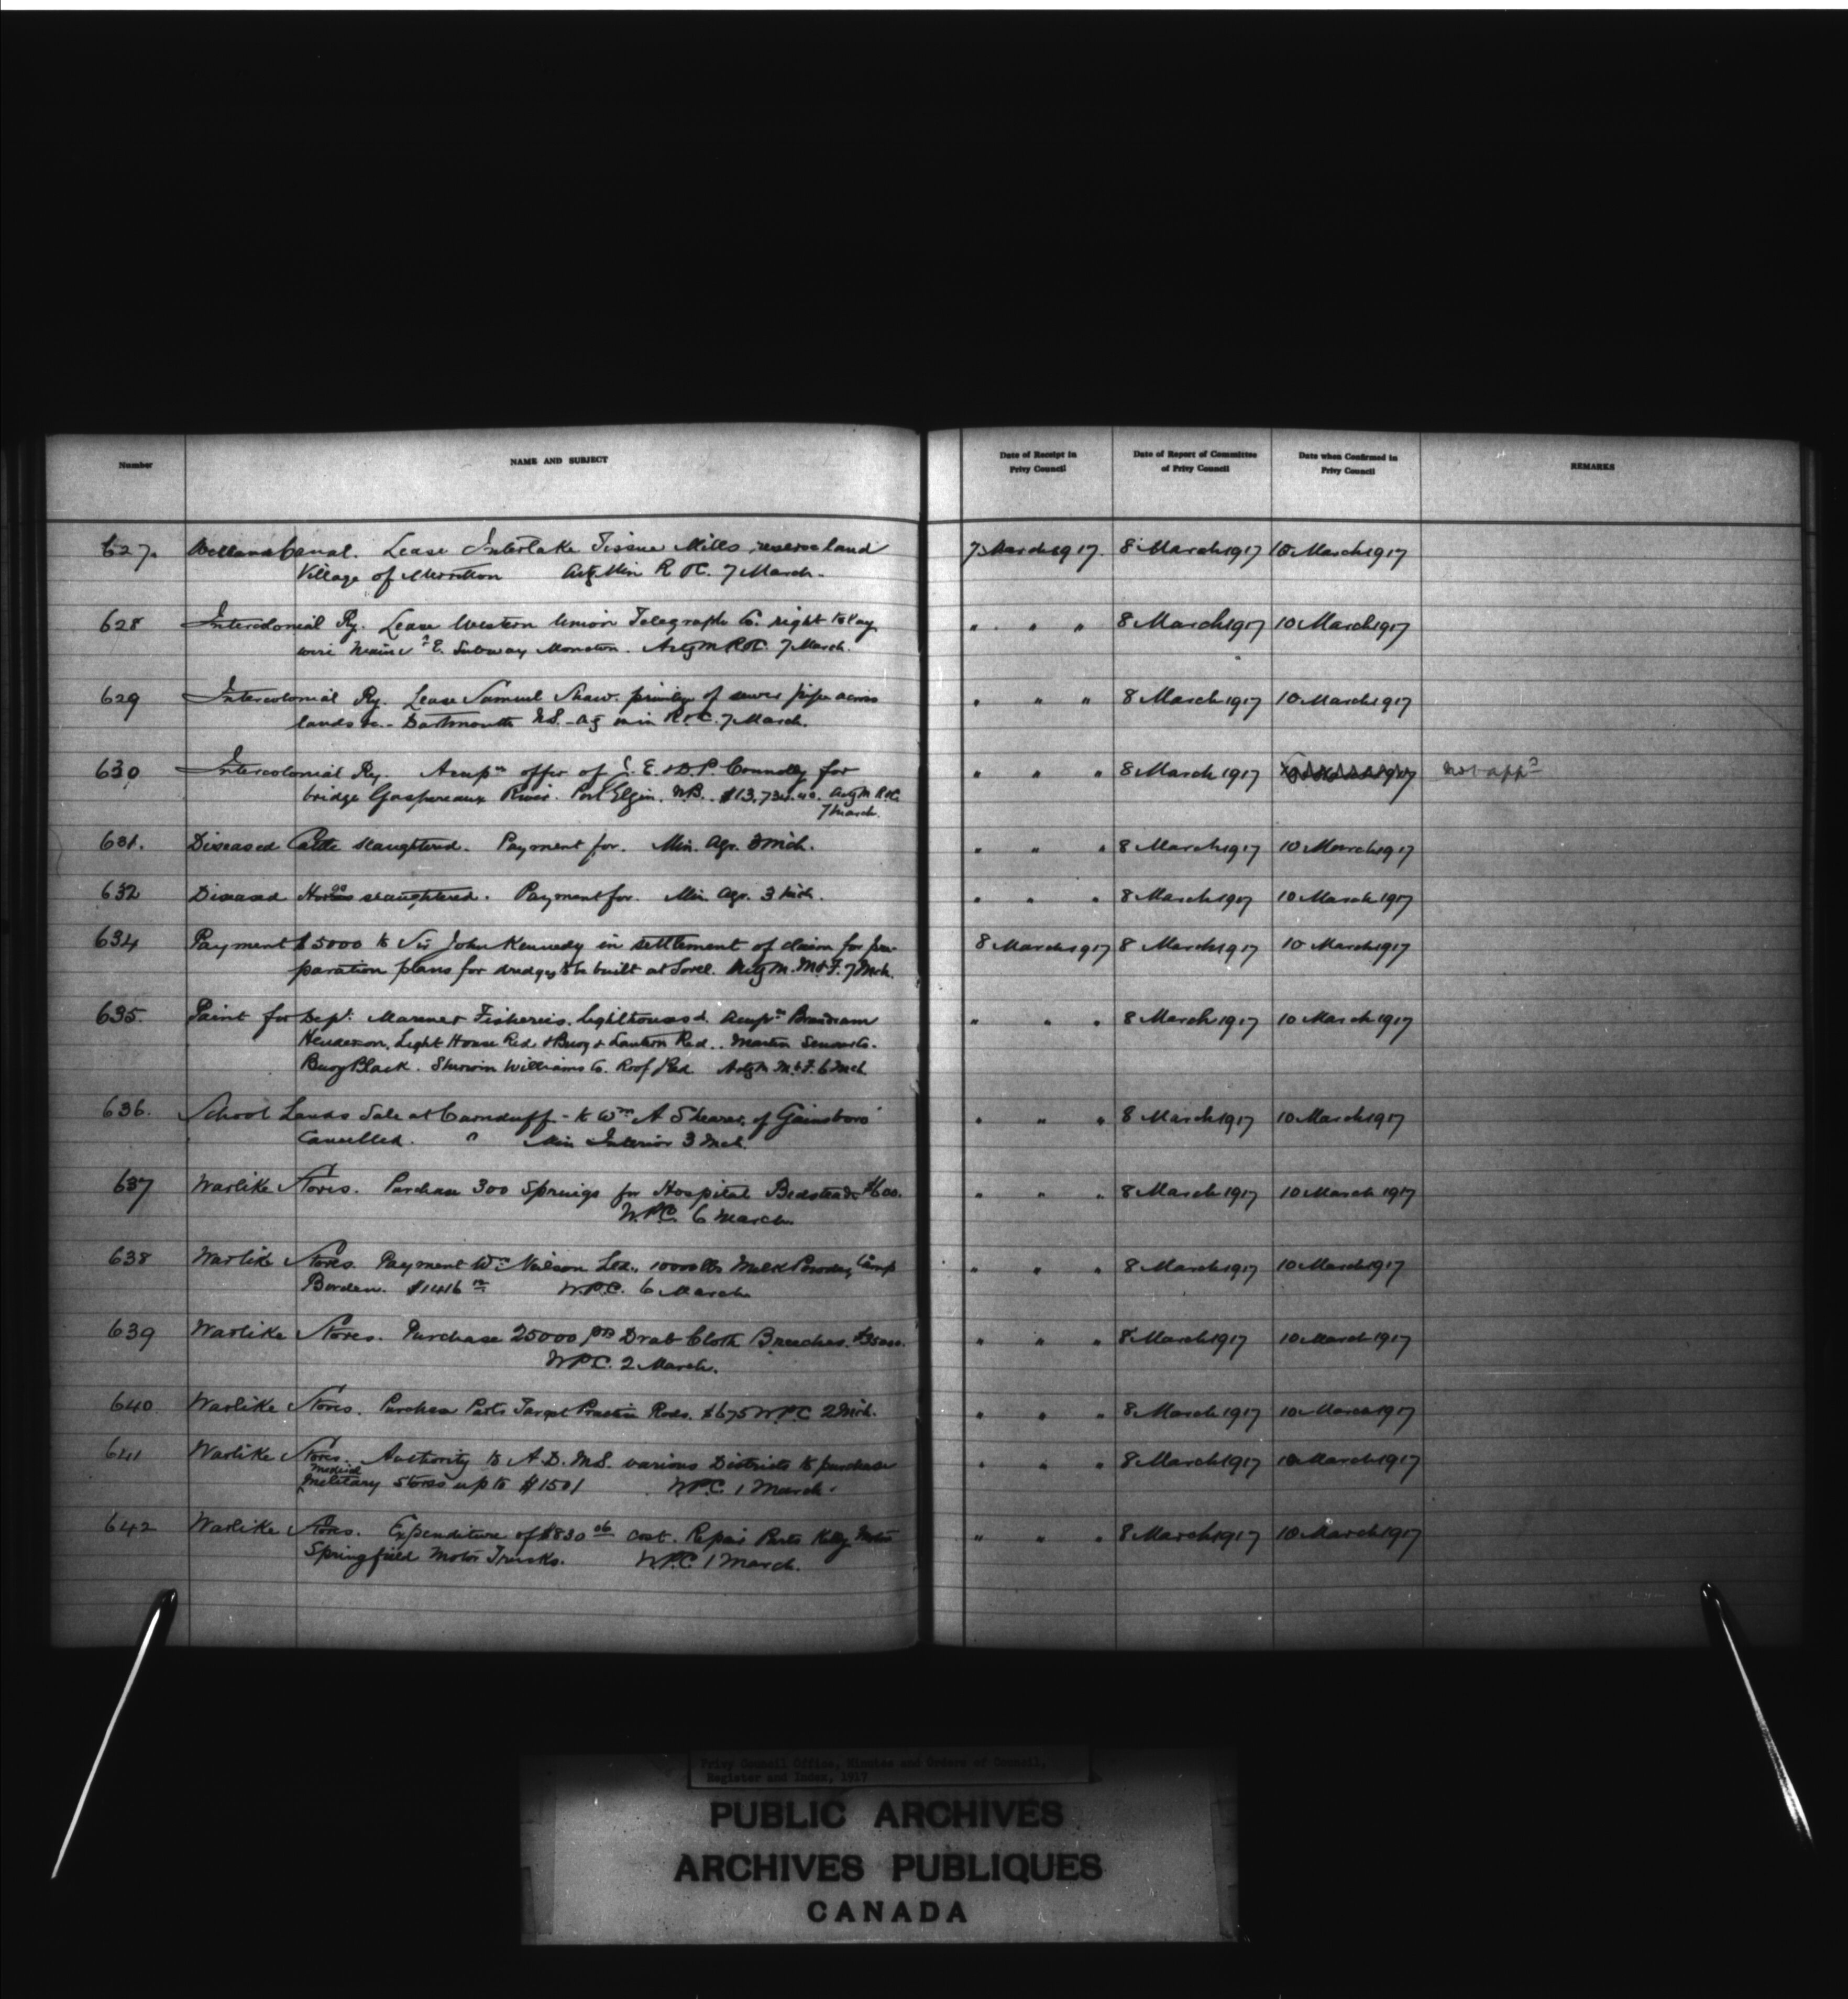 Number
NAME AND SUBJECT
Date of Receipt in
Privy Council
Date of Report of Committee
of Privy Council
Date when Confirmed in
Privy Council
REMARKS
627. Welland Canal. Lease Interlake Tissue Mills, reserve land 7 March 1917. 8 March 1917 10 March 1917
Village of Merritton Actg Min R & C. 7 March.
628 Intercolonial Ry. Lease Western Union Telegraph Co. right to lay " " " 8 March 1917 10 March 1917
wire E. Subway Moncton. Actg M R & C. 7 March.
629 Intercolonial Ry. Lease Samuel Shaw. privilege of sewer pipe across " " " 8 March 1917 10 March 1917
lands &c. - Dartmouth N.S. - Ag Min R & C. 7 March.
630 Intercolonial Ry. Accepce offer of E. & D.P. Connolly for " " " 8 March 1917 Not appd
bridge Gaspereaux River. Port Elgin. N.B. Actg M R & C.
7 March.
631. Diseased Cattle slaughtered. Payment for. Min. Agr. 3 Mch. " " " 8 March 1917 10 March 1917
632 Diseased slaughtered. Payment for. Min. Agr. 3 Mch. " " " 8 March 1917 10 March 1917
634 Payment $5000 to Sir John Kennedy in settlement of claim for pre- 8 March 1917 8 March 1917 10 March 1917
paration plans for dredges to be built at Sorel. Actg M. M & F. 7 Mch.
635. Paint for Dept. Marine & Fisheries. Brandram " " " 8 March 1917 10 March 1917
Henderson. Light House Red & Buoy & Lantern Red. Martin Senour Co.
Buoy Black. Sherwin Williams Co. Roof Red. Actg M. M & F. 6 Mch.
636. School Lands Sale at Carnduff - to Wm A Shearer, of Gainsboro " " " 8 March 1917 10 March 1917
Cancelled. " Min Interior 3 Mch.
637 Warlike Stores. Purchase 300 Springs for Hospital Bedsteads $600. " " " 8 March 1917 10 March 1917
W.P.C. 6 March.
638 Warlike Stores. Payment Wm Neilson Ltd. 10000 lbs Milk Powder, Camp " " " 8 March 1917 10 March 1917
Borden. $1416 W.P.C. 6 March
639 Warlike Stores. Purchase 25000 prs Drab Cloth Breeches. " " " 8 March 1917 10 March 1917
W.P.C. 2 March.
640 Warlike Stores. Purchase Parts Target Practice Rods. $675 W.P.C 2 Mch. " " " 8 March 1917 10 March 1917
641 Warlike Stores. Authority to A.D.M.S. various Districts to purchase " " " 8 March 1917 10 March 1917
Medical
Military Stores up to $150/ W.P.C. 1 March.
642 Warlike Stores. Expenditure of $830 06 cost. Repair Parts Kelly Motor " " " 8 March 1917 10 March 1917
Springfield Motor Trucks. W.P.C 1 March.
Privy Council Office, Minutes and Orders of Council,
Register and Index, 1917
PUBLIC ARCHIVES
ARCHIVES PUBLIQUES
CANADA